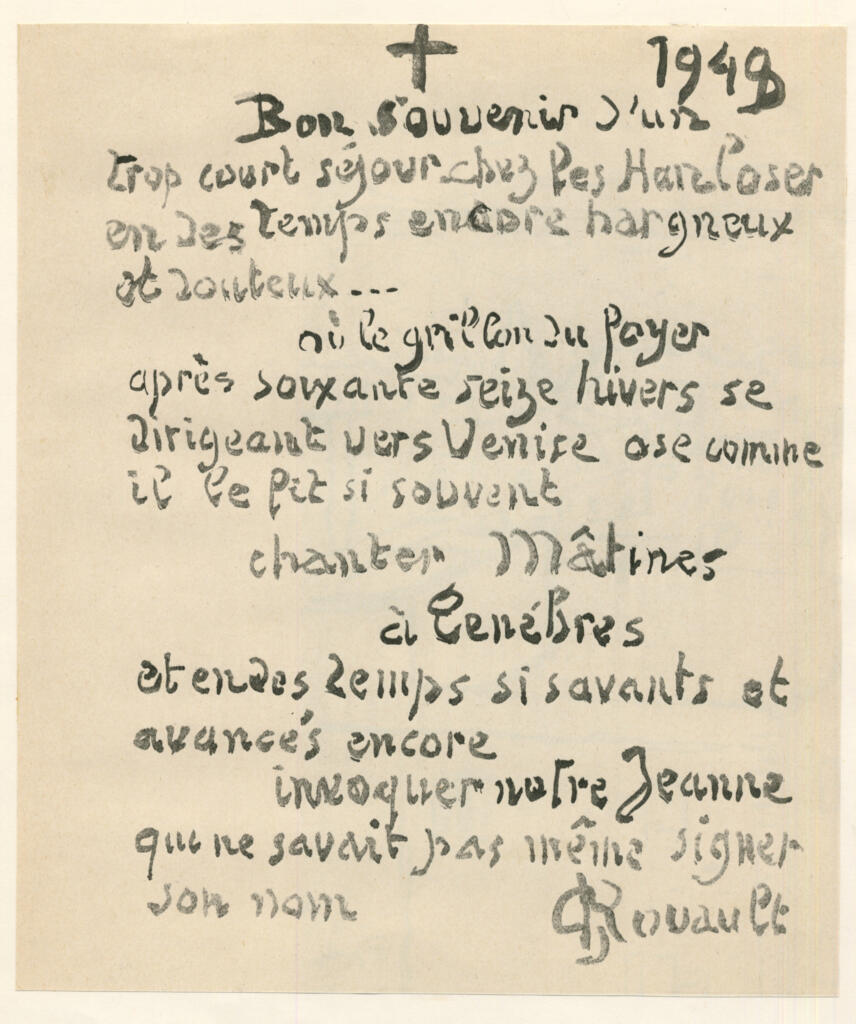 1948
Bon souvenir d'un
trop court séjour chez les Hahnloser
en des temps encore hargneux
et douteux...
où le grillon du foyer
après soixante seize hivers se
dirigeant vers Venise ose comme
il le fit si souvent
chanter Mâtines
à Ténébres
et en des temps si savants et
avancés encore
invoquer notre Jeanne
qui ne savait pas même signer
son nom
GRouault